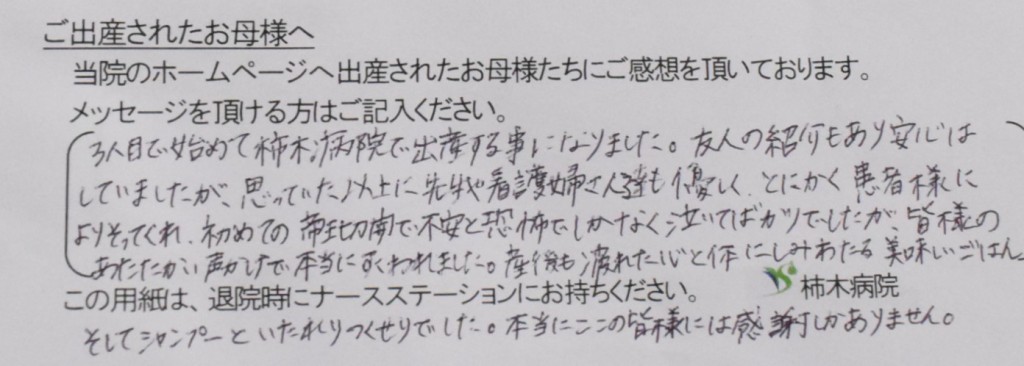 ご出産されたお母様へ
当院のホームページへ出産されたお母様たちにご感想を頂いております。
メッセージを頂ける方はご記入ください。
3人目で始めて柿木病院で出産する事になりました。友人の紹介もあり安心は
していましたが、思っていた以上に先生や看護婦さん達も優しく、とにかく患者様に
よりそってくれ、初めての帝王切開で不安と恐怖でしかなく泣いてばかりでしたが、皆様の
あたたかい声かけで本当にすくわれました。産後も疲れた心と体にしみわたる美味しいごはん
この用紙は、退院時にナースステーションにお持ちください。
柿木病院
そしてシャンプーといたれりつくせりでした。本当にここの皆様には感謝しかありません。